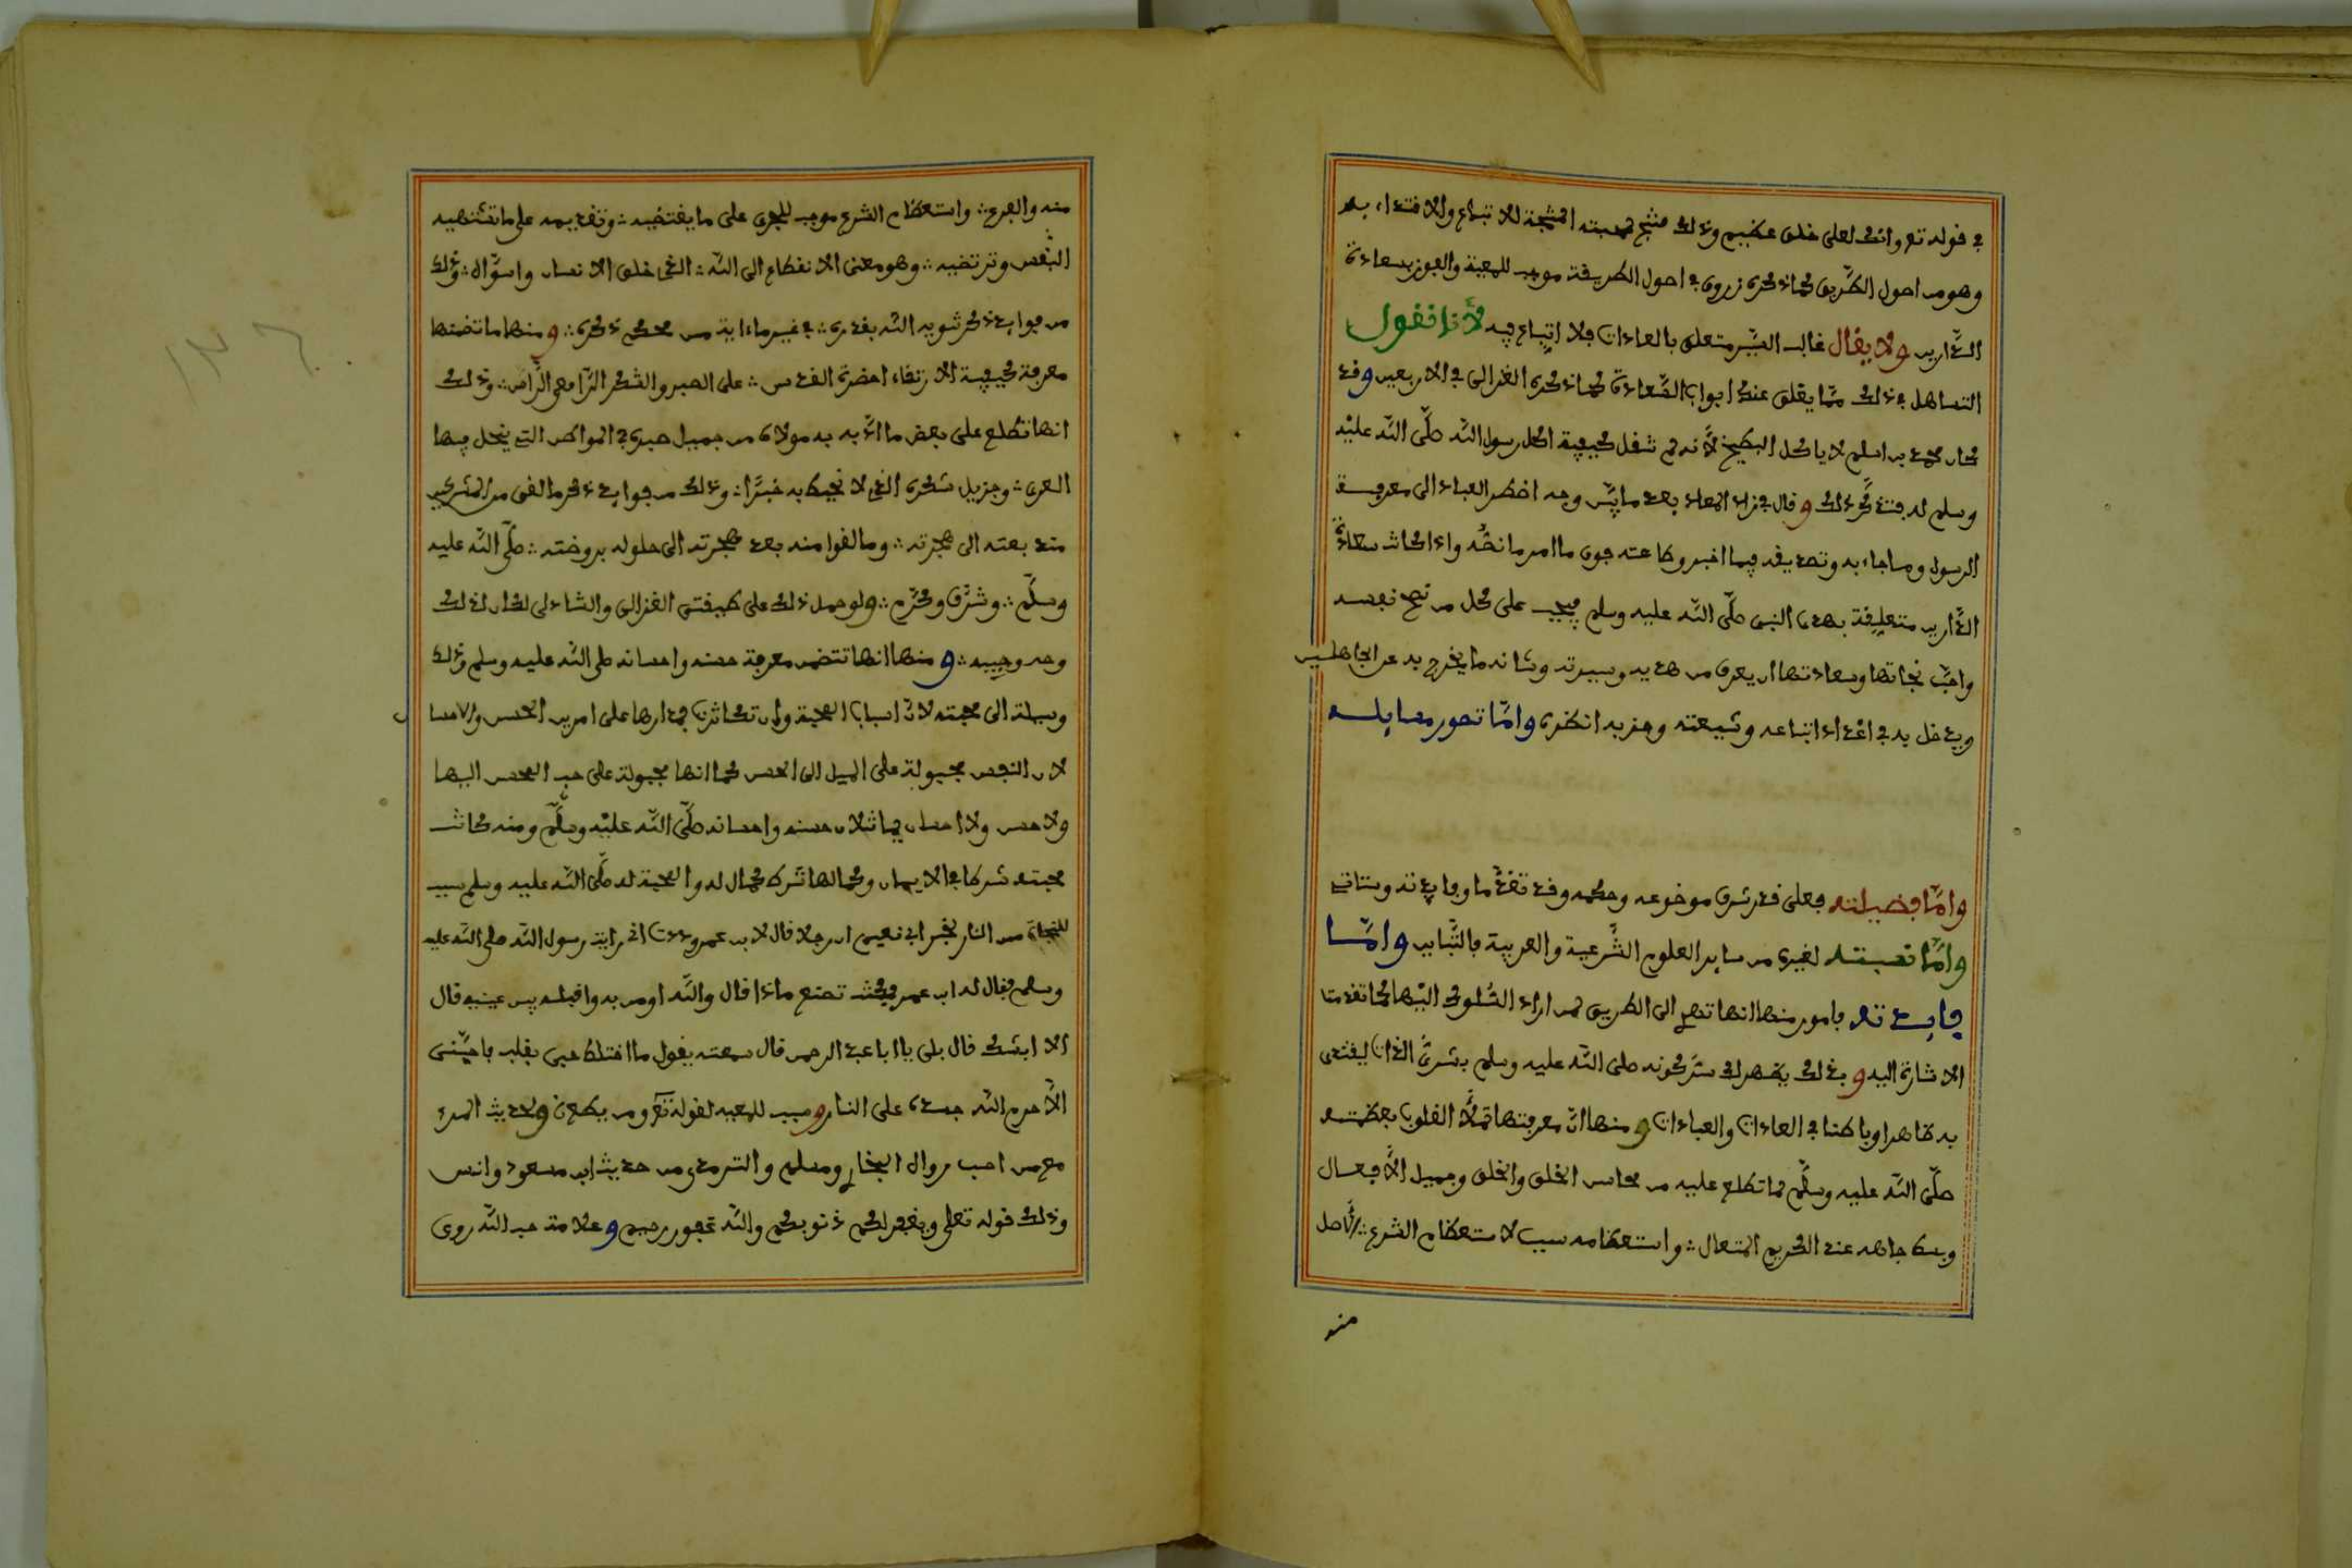 في قوله تع وانك لعلى خلق عظيم وذلك منتج لمحبته المنتجة للاتباع والاقتداء به
وهو من اصول الطريق كما ذكره زروق في اصول الطريقة موجب للمعية والفوز بسعادة
الدارين ولا يقال غالب السير متعلق بالعادات فلا اتباع فيه لأنا نقول
التساهل في ذلك مما يغلق عندك ابواب السعادة كما ذكره الغزالي في الاربعين وقد
كان محمد بن اسلم لا ياكل البطيخ لأنه لم تنقل كيفية اكل رسول الله صلى الله عليه
وسلم له وقال في زاد المعاد بعد ما بين وجه اضطرار العباد الى معرفة
الرسول وما جاء به وتصديقه فيما اخبر وطاعته فيما امر ما نصه واذا كانت سعادة
الدارين متعلقة بهدي النبي صلى الله عليه وسلم فيجب على كل من نصح نفسه
واحب نجاتها وسعادتها ان يعرف من هديه وسيرته وشانه ما يخرج به عن الجاهلين
ويدخل به في اعداد اتباعه وشيعته وحزبه انظره واما تصور مسايله
واما فضيلته فعلى قدر شرف موضوعه وحكمه وقد تقدما وفايدته وستاتي
واما نسبته لغيره من ساير العلوم الشرعية والعربية فالتباين واما
فايدته فامور منها انها تهدي الى الطريق لمن اراد السلوك اليها كما تقدمت
الاشارة اليه وبذلك يظهر لك سر كونه صلى الله عليه وسلم بشري الذات ليقتدى
به ظاهرا وباطنا في العادات والعبادات ومنها ان معرفتها تملأ القلوب بعظمته
صلى الله عليه وسلم لما تطلع عليه من محاسن الخلق والخلق وجميل الأفعال
وبسط جاهه عند الكريم المتعال واستعظامه سبب لاستعظام الشرع الأصل
منه
منه والفرع واستعظام الشرع موجب للجري على ما يقتضيه وتقديمه على ما تشتهيه
النفس وترتضيه وهو معنى الانقطاع الى الله الذي خلق الانسان واسواه وذلك
من فوايد ذكر تنويه الله بقدره في غير ما ءاية من محكم ذكره ومنها ما تضمنها
معرفة كيفية الارتقاء لحضرة القدس على الصبر والشكر وذلك
انها تطلع على بعض ما ادبه به مولاه من جميل صبره في المواطن التي ينحل فيها
العرى وجزيل شكره الذي لا يحيط به خبرا وذلك من فوايد ذكر ما لقى من المشركين
منذ بعثه الى هجرته وما لقوا منه بعد هجرته الى حلوله بروضته صلى الله عليه
وسلم وشرف وكرم ولو حمل ذلك على طريقتي الغزالي والشاذلي لكان لذلك
وجه وجيه ومنها انها تتضمن معرفة حسنه واحسانه صلى الله عليه وسلم وذلك
وسيلة الى محبته لان اسباب المحبة وان تكاثرت فمدارها على امرين الحسن والاحسان
لان النفس مجبولة على الميل الى الحسن كما انها مجبولة على حب المحسن اليها
ولا حسن ولا احسان يماثلان حسنه واحسانه صلى الله عليه وسلم ومنه كانت
محبته شرطا في الايمان وكمالها شرط كمال له والمحبة له صلى الله عليه وسلم سبب
للنجاة من النار لخبر ابي نعيم ان رجلا قال لابن عمر وددت اني رايت رسول الله صلى الله عليه
وسلم فقال له ابن عمر فكنت تصنع ماذا قال والله اومن به واقبله بين عينيه قال
الا ابشرك قال بلى يا ابا عبد الرحمن قال سمعته يقول ما اختلط حبي بقلب فاحبني
الا حرم الله جسده على النار وسبب للمعية لقوله تع ومن يطع ولحديث المرء
مع من احب رواه البخاري ومسلم والترمذي من حديث ابن مسعود وانس
وذلك قوله تعلى ويغفر لكم ذنوبكم والله غفور رحيم وعلامة حب الله روى